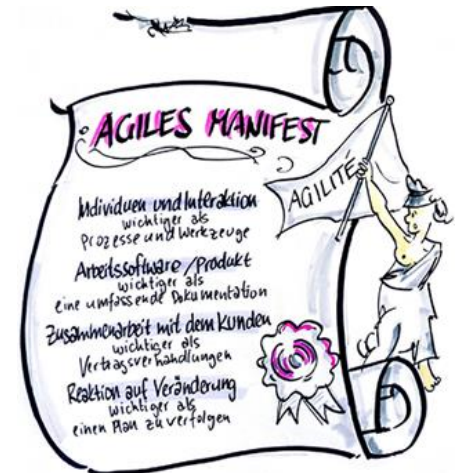 AGILES MANIFEST
AGILITÉ
Individuen und Interaktion
wichtiger als
Prozesse und Werkzeuge
Arbeitssoftware / Produkt
wichtiger als
eine umfassende Dokumentation
Zusammenarbeit mit dem Kunden
wichtiger als
Vertragsverhandlungen
Reaktion auf Veränderung
wichtiger als
einen Plan zu verfolgen